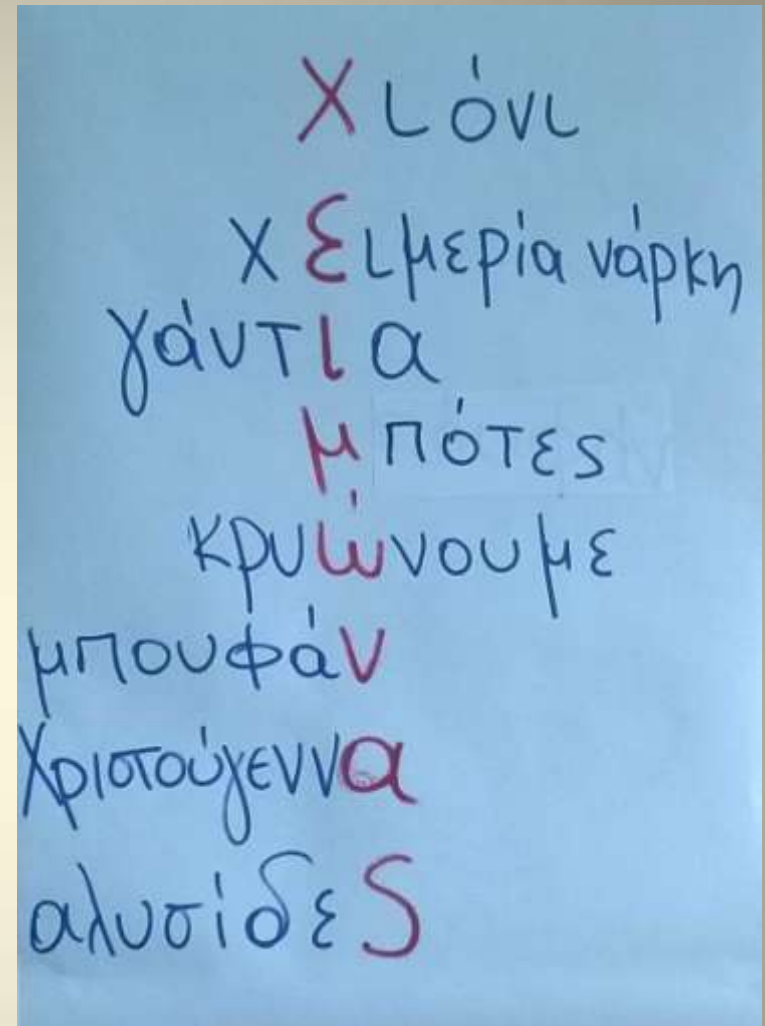 Χιόνι
χειμερία νάρκη
γάντια
μπότες
κρυώνουμε
μπουφάν
Χριστούγεννα
αλυσίδες